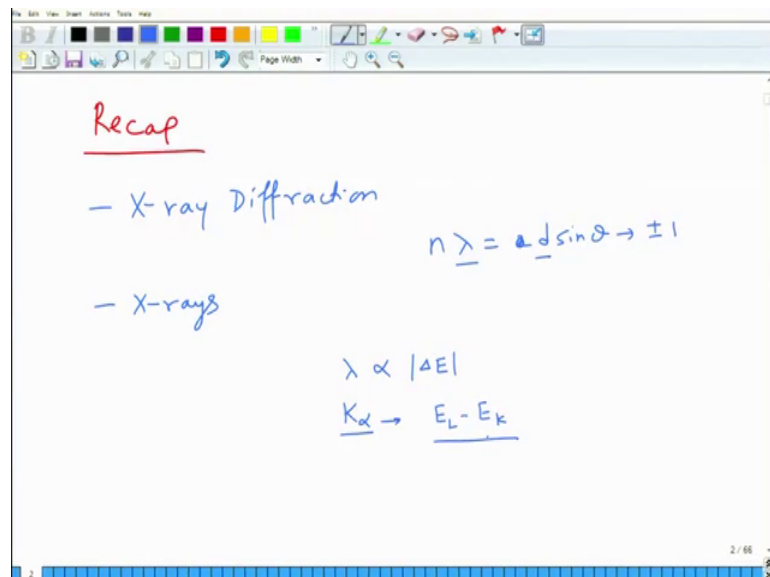 File Edit View Insert Actions Tools Help
B I
Page Width
Recap
— X-ray Diffraction
n λ = d sin θ → ± 1
— X-rays
λ ∝ |ΔE|
Kα → E_L - E_K
2 / 66
2